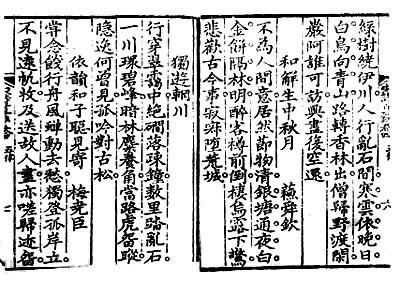 綠樹繞伊川人行亂石間寒雲依晚日
白鳥向青山路轉香林出僧歸野渡閑
巖阿誰可訪興盡復空還
和解生中秋月　蘇舜欽
不為人間意居然節物清銀塘通夜白
金餅隔林明醉客樽前倒棲烏露下驚
悲歡古今事寂寂墮荒城
獨遊輞川
行穿翠靄中絕磵落疎鐘數里踏亂石
一川環碧峰暗林麋養角當路虎留蹤
隱逸何曾見孤吟對古松
依韻和子聰見寄　梅堯臣
嘗念餞行舟風蟬動去愁獨登孤岸立
不見遠帆收及送故人盡亦嗟歸迹留